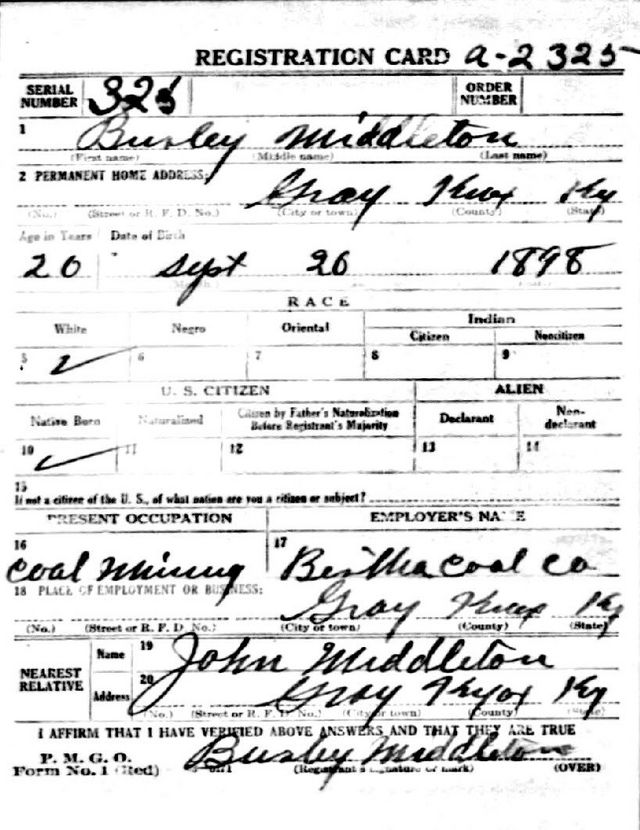 REGISTRATION CARD A-2325
SERIAL NUMBER 325 ORDER NUMBER
1 Burley Middleton
(First name) (Middle name) (Last name)
2 PERMANENT HOME ADDRESS:
Gray Knox Ky
(No.) (Street or R. F. D. No.) (City or town) (County) (State)
Age in Years Date of Birth
20 Sept 26 1898
RACE
White Negro Oriental Indian
Citizen Noncitizen
5 ✓ 6 7 8 9
U. S. CITIZEN ALIEN
Native Born Naturalized Citizen by Father's Naturalization Before Registrant's Majority Declarant Non-declarant
10 ✓ 11 12 13 14
15
If not a citizen of the U. S., of what nation are you a citizen or subject?
PRESENT OCCUPATION EMPLOYER'S NAME
16 Coal Mining 17 Bertha Coal Co
18 PLACE OF EMPLOYMENT OR BUSINESS:
Gray Knox Ky
(No.) (Street or R. F. D. No.) (City or town) (County) (State)
NEAREST RELATIVE Name 19 John Middleton
Address 20 Gray Knox Ky
(No.) (Street or R. F. D. No.) (City or town) (County) (State)
I AFFIRM THAT I HAVE VERIFIED ABOVE ANSWERS AND THAT THEY ARE TRUE
P. M. G. O.
Form No. 1 (Red) Burley Middleton
(Registrant's signature or mark) (OVER)